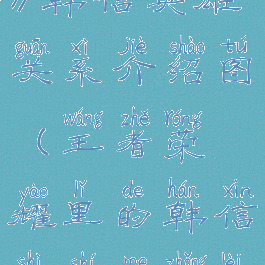 《韩信英雄
guān xì jiè shào tú
关系介绍图
wáng zhě róng
(王者荣
yào lǐ de hán xìn
耀里的韩信
shì shí me zhǒng lèi